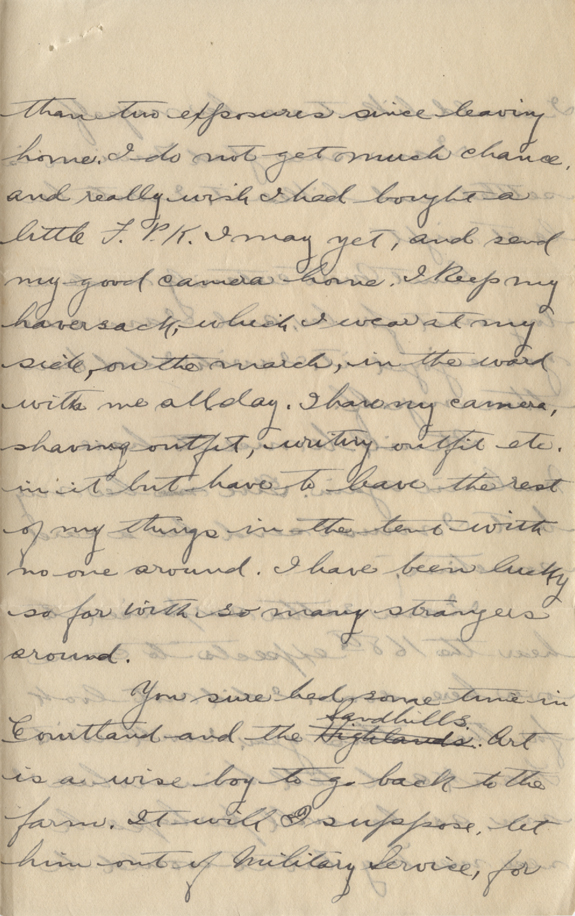 than two exposures since leaving
home. I do not get much chance,
and really wish I had bought a
little F. P. K. I may yet, and send
my good camera home. I keep my
haversack, which I wear at my
side, on the march, in the ward
with me all day. I have my camera,
shaving outfit, writing outfit etc.
in it but have to leave the rest
of my things in the tent with
no one around. I have been lucky
so far with so many strangers
around.
You sure had some time in
Sandhills.
Courtland and the Highlands. Art
is a wise boy to go back to the
farm. It will I suppose, let
him out of Military Service, for